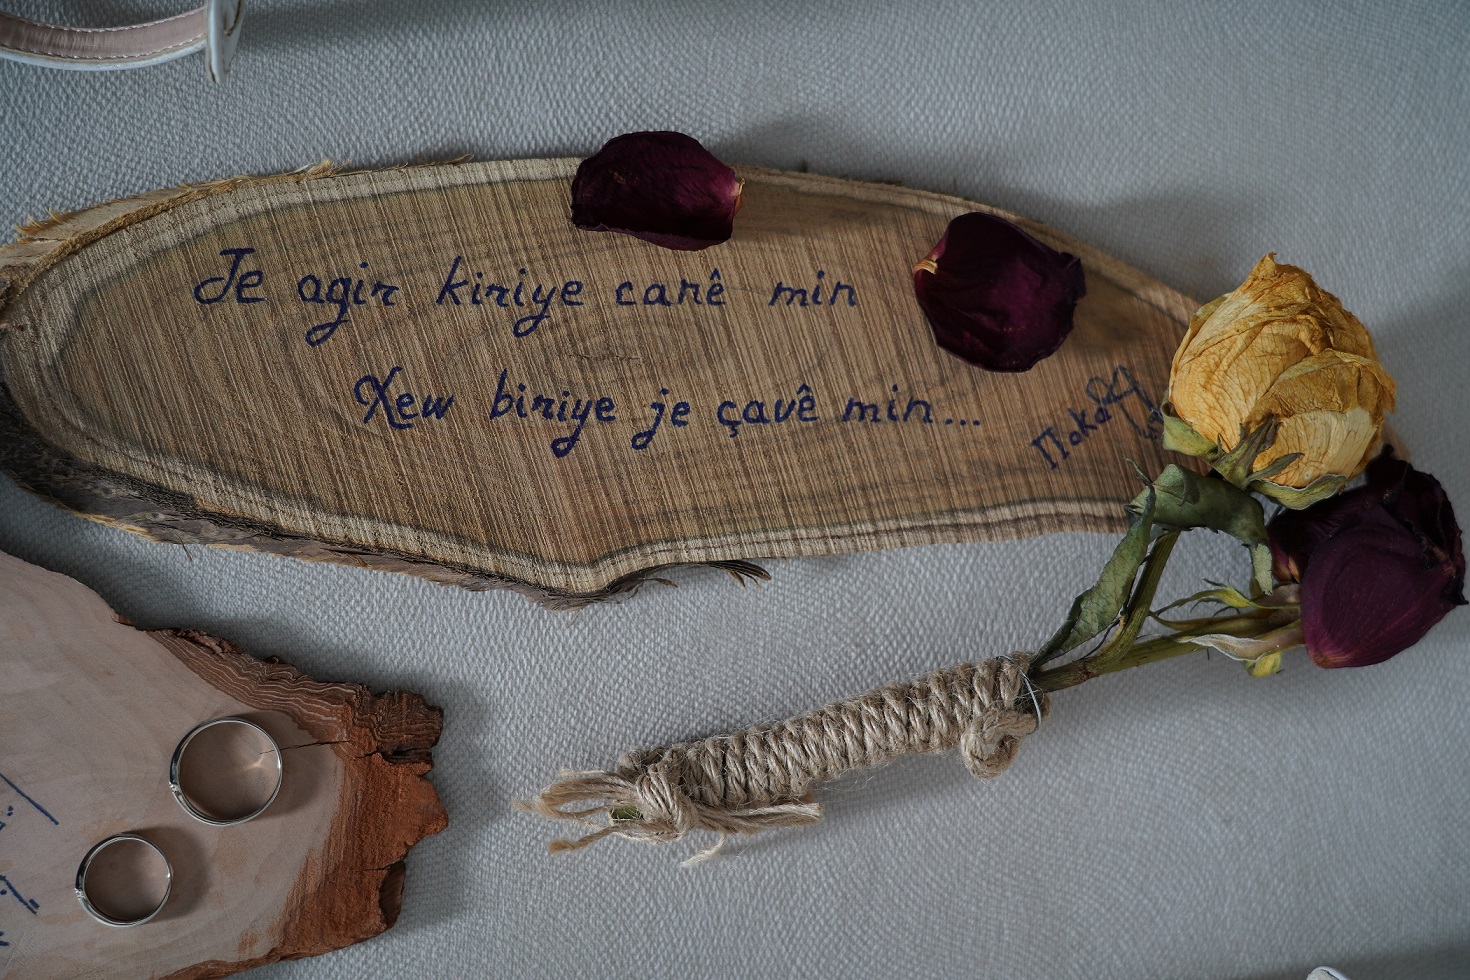 Je agir kiriye canê min
Xew biriye je çavê min...